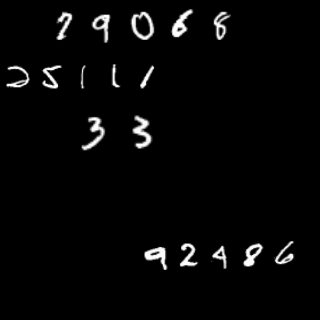 79068
25111
33
92486